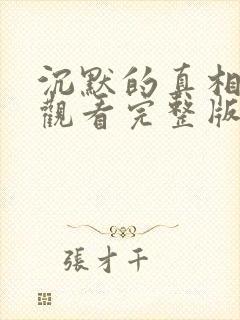 沉默的真相
觀看完整版
張才千